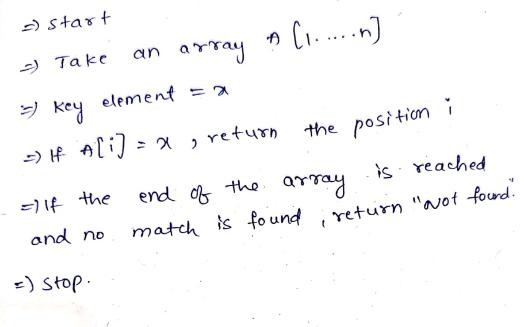 ⇒ start
⇒ Take an array A [1.....n]
⇒ Key element = x
⇒ If A[i] = x , return the position i
⇒ If the end of the array is reached
and no match is found , return "Not found."
⇒ Stop.